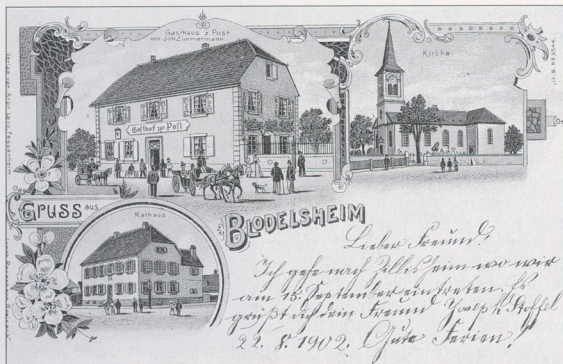 Gasthaus z. Post
von Joh. Zimmermann.
Kirche
Gasthof zur Post
Gruss aus
Blodelsheim
Rathaus
Lieber Freund!
Ich gehe nach Zillisheim wo wir
am 18. September eintreten. Es
grüßt dich dein Freund
22. 8. 1902. Gute Ferien!